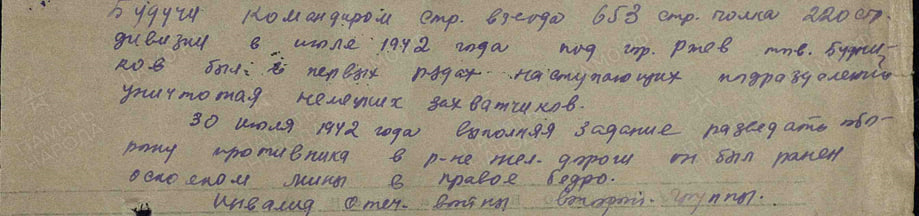 Будучи командиром стр. взвода 653 стр. полка 220 стр.
дивизии в июле 1942 года под гор. Ржев тов. Бурми-
ков был в первых рядах наступающих подразделений
уничтожая немецких захватчиков.
30 июля 1942 года выполняя задание разведать обо-
рону противника в р-не жел. дороги он был ранен
осколком мины в правое бедро.
Инвалид отеч. войны второй группы.